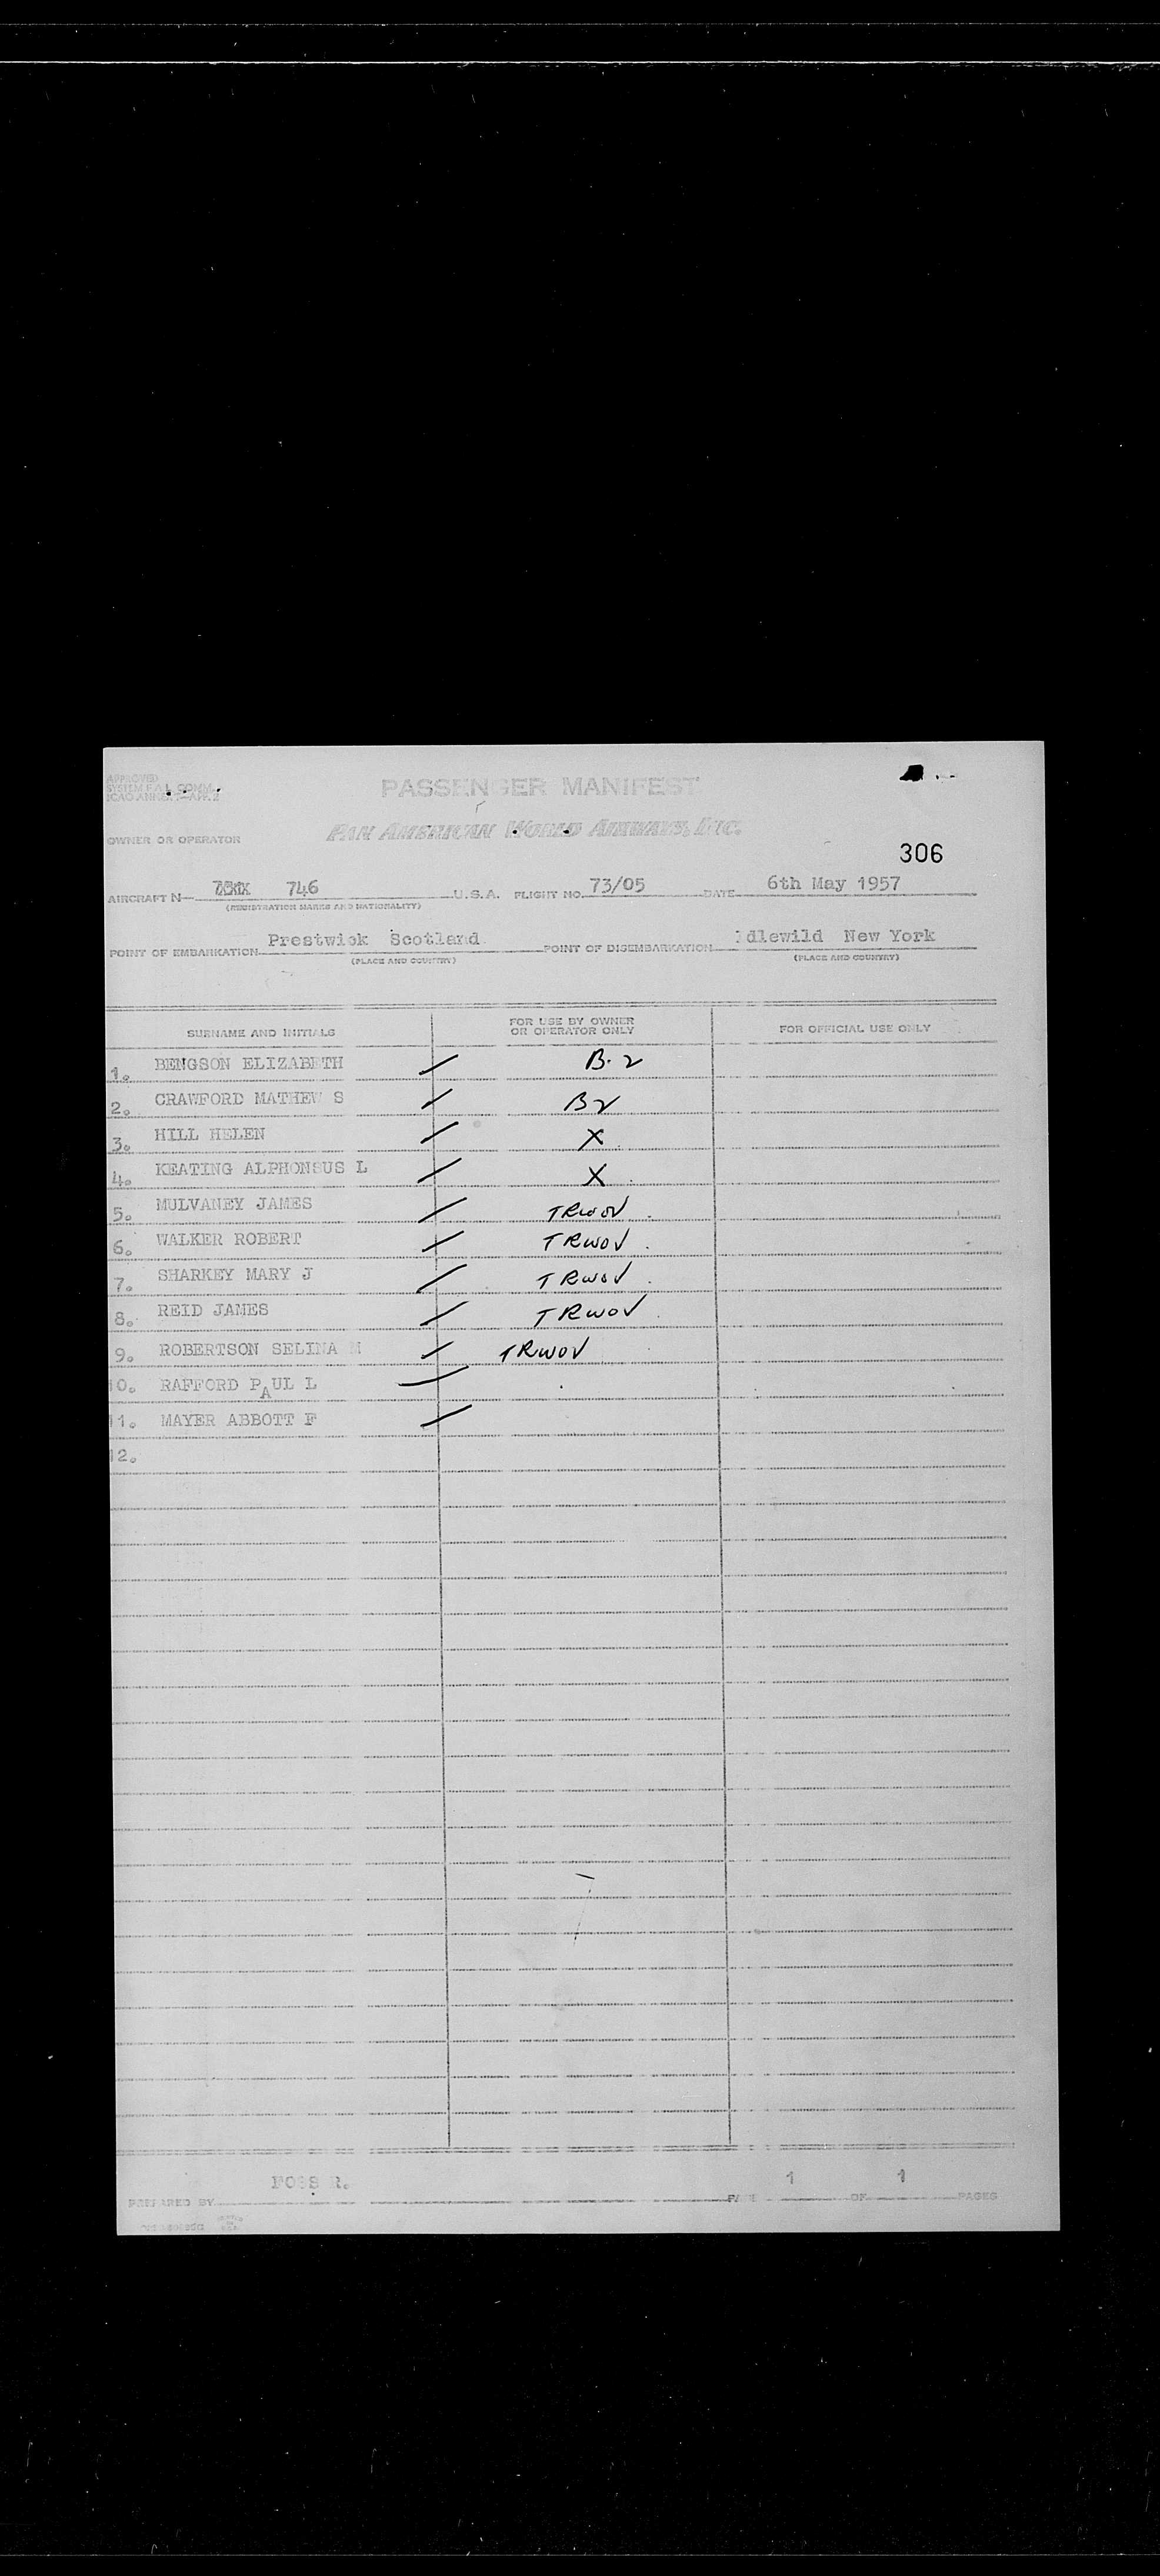 APPROVED
SYSTEM F.A.L. COMM.
ICAO ANNEX 9—APP. 2
PASSENGER MANIFEST
OWNER OR OPERATOR
PAN AMERICAN WORLD AIRWAYS, INC.
306
AIRCRAFT N— 746 U.S.A. FLIGHT NO. 73/05 DATE 6th May 1957
(REGISTRATION MARKS AND NATIONALITY)
POINT OF EMBARKATION Prestwick Scotland POINT OF DISEMBARKATION Idlewild New York
(PLACE AND COUNTRY) (PLACE AND COUNTRY)
SURNAME AND INITIALS FOR USE BY OWNER OR OPERATOR ONLY FOR OFFICIAL USE ONLY
1. BENGSON ELIZABETH B-2
2. CRAWFORD MATHEW S B2
3. HILL HELEN X
4. KEATING ALPHONSUS L X
5. MULVANEY JAMES TRWOV
6. WALKER ROBERT TRWOV
7. SHARKEY MARY J TRWOV
8. REID JAMES TRWOV
9. ROBERTSON SELINA M TRWOV
10. RAFFORD PAUL L
11. MAYER ABBOTT F
12.
FOSS R.
PREPARED BY PAGE 1 OF 1 PAGES